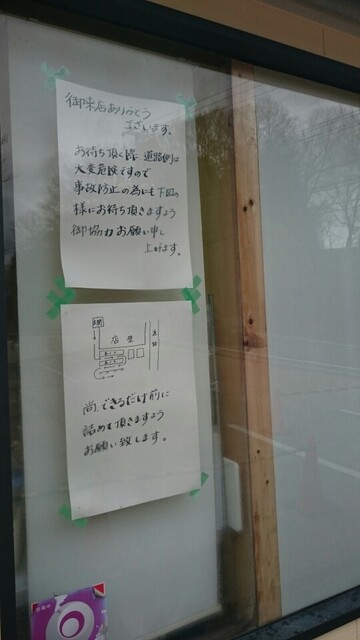 御来店ありがとう
ございます。
お待ち頂く際、道路側は
大変危険ですので
事故防止の為にも下図の
様にお待ち頂きますよう
御協力お願い申し
上げます。
店
道路
尚、できるだけ前に
詰めて頂きますよう
お願い致します。